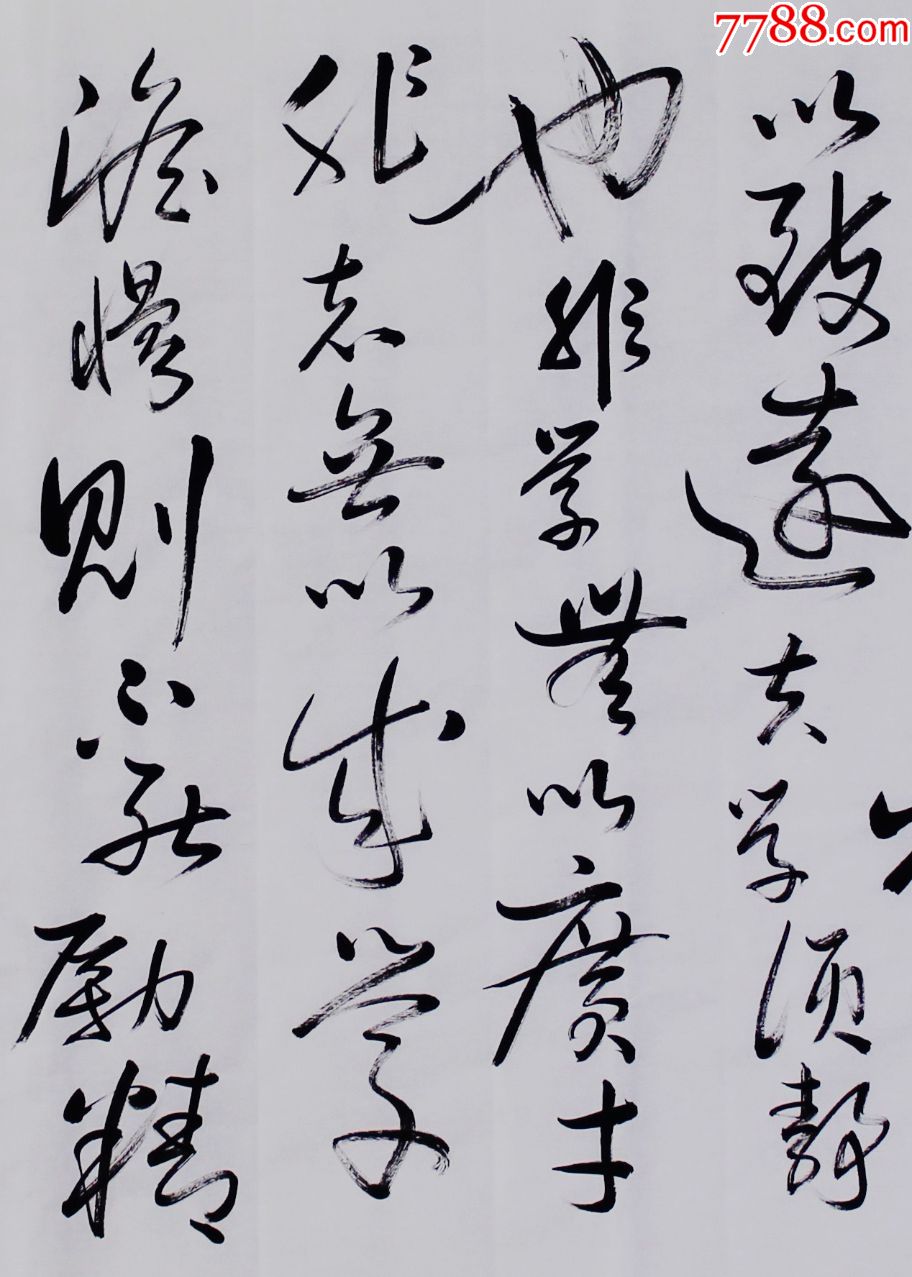 7788.com
以致遠夫学須靜
也非学無以廣才
非志無以成学
淫慢則不能勵精